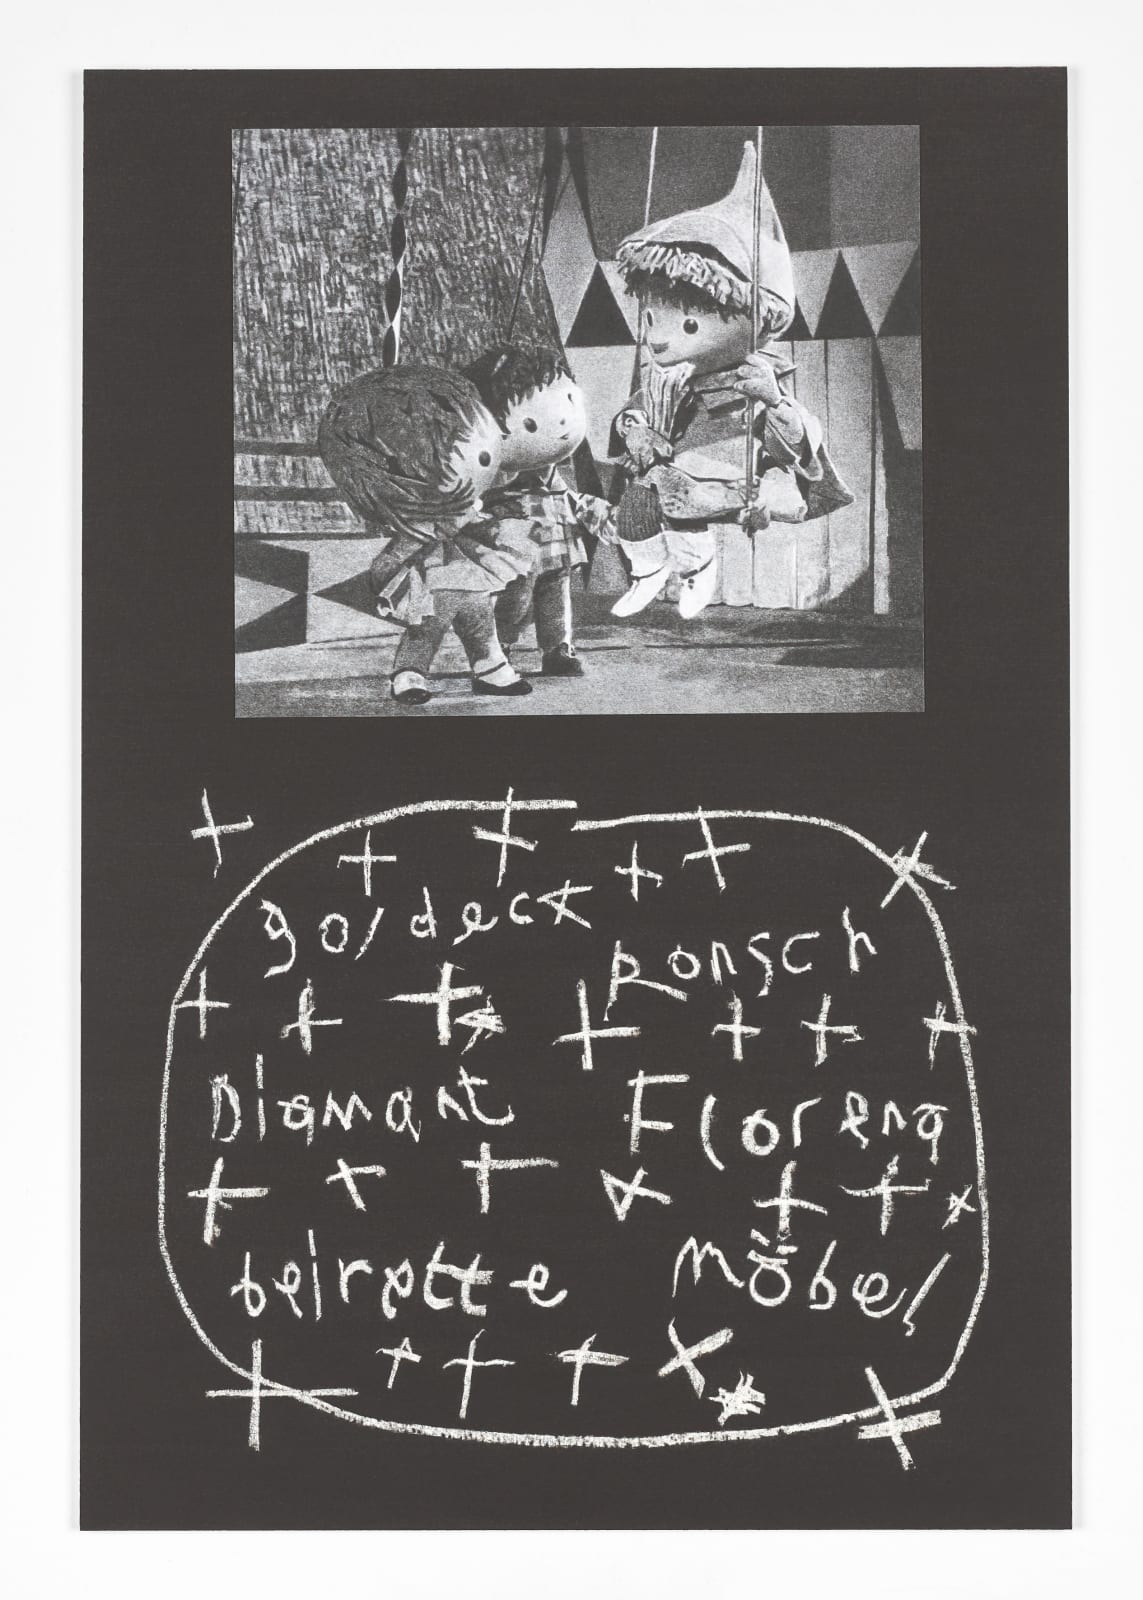 goldeck Ronsch
Diamant Florena
beirette möbel